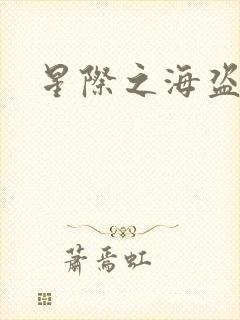 星際之海盜
蕭焉虹